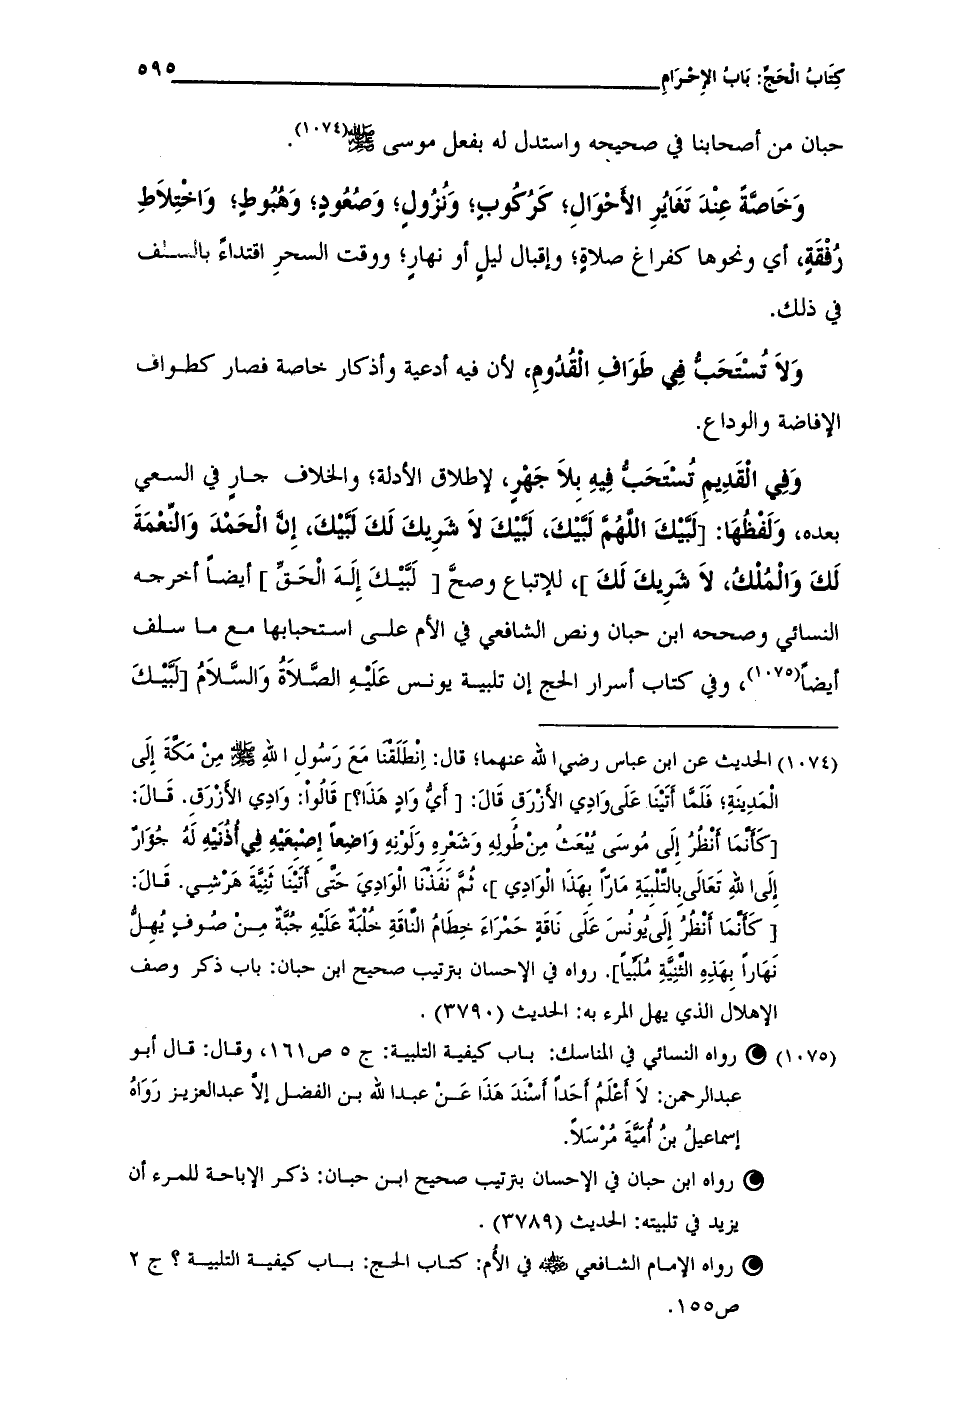 كِتَابُ الْحَجِّ: بَابُ الإِحْرَامِ ٥٩٥
حبان من أصحابنا في صحيحه واستدل له بفعل موسى ﷺ(١٠٧٤).
وَخَاصَّةً عِنْدَ تَغَايُرِ الأَحْوَالِ؛ كَرُكُوبٍ؛ وَنُزُولٍ؛ وَصُعُودٍ؛ وَهُبُوطٍ؛ وَاخْتِلَاطِ
رُفْقَةٍ، أي ونحوها كفراغ صلاةٍ؛ وإقبال ليلٍ أو نهارٍ؛ ووقت السحرِ اقتداءً بالسلف
في ذلك.
وَلاَ تُسْتَحَبُّ فِي طَوَافِ الْقُدُومِ، لأن فيه أدعية وأذكار خاصة فصار كطواف
الإفاضة والوداع.
وَفِي الْقَدِيمِ تُسْتَحَبُّ فِيهِ بِلاَ جَهْرٍ، لإطلاق الأدلة؛ والخلاف جارٍ في السعي
بعده، وَلَفْظُهَا: [لَبَّيْكَ اللَّهُمَّ لَبَّيْكَ، لَبَّيْكَ لاَ شَرِيكَ لَكَ لَبَّيْكَ، إِنَّ الْحَمْدَ وَالنِّعْمَةَ
لَكَ وَالْمُلْكُ، لاَ شَرِيكَ لَكَ ]، للإتباع وصحَّ [ لَبَّيْكَ إِلَهَ الْحَقِّ ] أيضاً أخرجه
النسائي وصححه ابن حبان ونص الشافعي في الأم على استحبابها مع ما سلف
أيضاً(١٠٧٥)، وفي كتاب أسرار الحج إن تلبية يونس عَلَيْهِ الصَّلاَةُ وَالسَّلاَمُ [لَبَّيْكَ
(١٠٧٤) الحديث عن ابن عباس رضي الله عنهما؛ قال: اِنْطَلَقْنَا مَعَ رَسُولِ اللهِ ﷺ مِنْ مَكَّةَ إِلَى
الْمَدِينَةِ؛ فَلَمَّا أَتَيْنَا عَلَى وَادِي الأَزْرَقِ قَالَ: [ أَيُّ وَادٍ هَذَا؟] قَالُواْ: وَادِي الأَزْرَقِ. قَالَ:
[كَأَنَّمَا أَنْظُرُ إِلَى مُوسَى يُبْعَثُ مِنْ طُولِهِ وَشَعْرِهِ وَلَوْنِهِ وَاضِعاً إِصْبَعَيْهِ فِي أُذُنَيْهِ لَهُ جُوَارٌ
إِلَى اللهِ تَعَالَى بِالتَّلْبِيَةِ مَارًّا بِهَذَا الْوَادِي ]، ثُمَّ نَفَذْنَا الْوَادِيَ حَتَّى أَتَيْنَا ثَنِيَّةَ هَرْشِي. قَالَ:
[ كَأَنَّمَا أَنْظُرُ إِلَى يُونُسَ عَلَى نَاقَةٍ حَمْرَاءَ خِطَامُ النَّاقَةِ خُلْبَةٌ عَلَيْهِ جُبَّةٌ مِنْ صُوفٍ يُهِلُّ
نَهَاراً بِهَذِهِ الثَّنِيَّةِ مُلَبِّياً]. رواه في الإحسان بترتيب صحيح ابن حبان: باب ذكر وصف
الإهلال الذي يهل المرء به: الحديث (٣٧٩٠) .
(١٠٧٥) رواه النسائي في المناسك: باب كيفية التلبية: ج ٥ ص١٦١، وقال: قال أبو
عبدالرحمن: لاَ أَعْلَمُ أَحَداً أَسْنَدَ هَذَا عَنْ عبدالله بن الفضل إلاَّ عبدالعزيز رَوَاهُ
إسماعيلُ بنُ أُمَيَّةَ مُرْسَلاً.
رواه ابن حبان في الإحسان بترتيب صحيح ابن حبان: ذكر الإباحة للمرء أن
يزيد في تلبيته: الحديث (٣٧٨٩) .
رواه الإمام الشافعي ﷺ في الأُم: كتاب الحج: باب كيفية التلبية ؟ ج ٢
ص١٥٥.